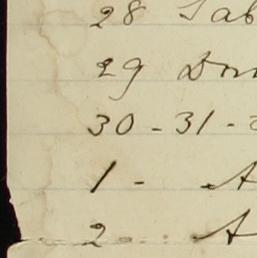 28 Sab
29 Dom
30 - 31 -
1 - A
2 - A